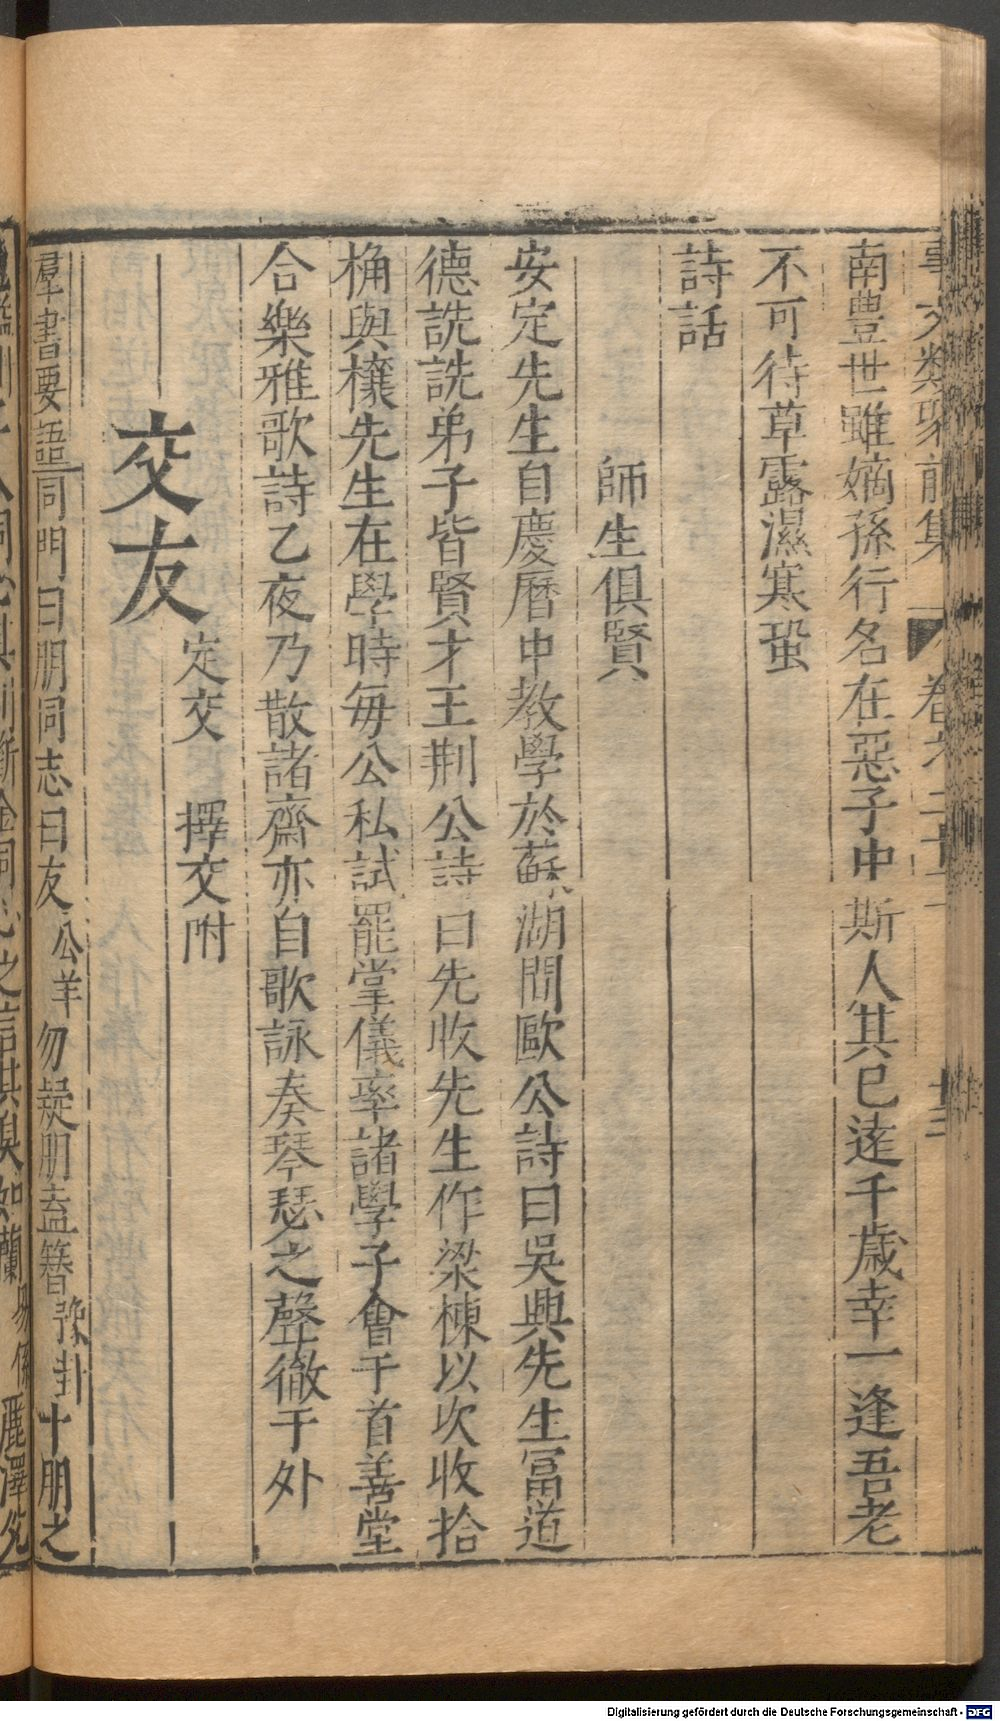 事文類聚前集 卷之二十二 十二
南豊世雖嫡孫行名在惡子中斯人其已逺千歳幸一逢吾老
不可待草露濕寒蛩
詩話
師生俱賢
安定先生自慶曆中教學於蘇湖間歐公詩曰吳興先生冨道
德詵詵弟子皆賢才王荆公詩曰先收先生作梁棟以次收拾
桷與榱先生在學時每公私試罷掌儀率諸學子會于首善堂
合樂雅歌詩乙夜乃散諸齋亦自歌詠奏琴瑟之聲徹于外
交友 定交 擇交附
羣書要語同門曰朋同志曰友公羊勿疑朋盍簪豫卦十朋之
Digitalisierung gefördert durch die Deutsche Forschungsgemeinschaft - DFG